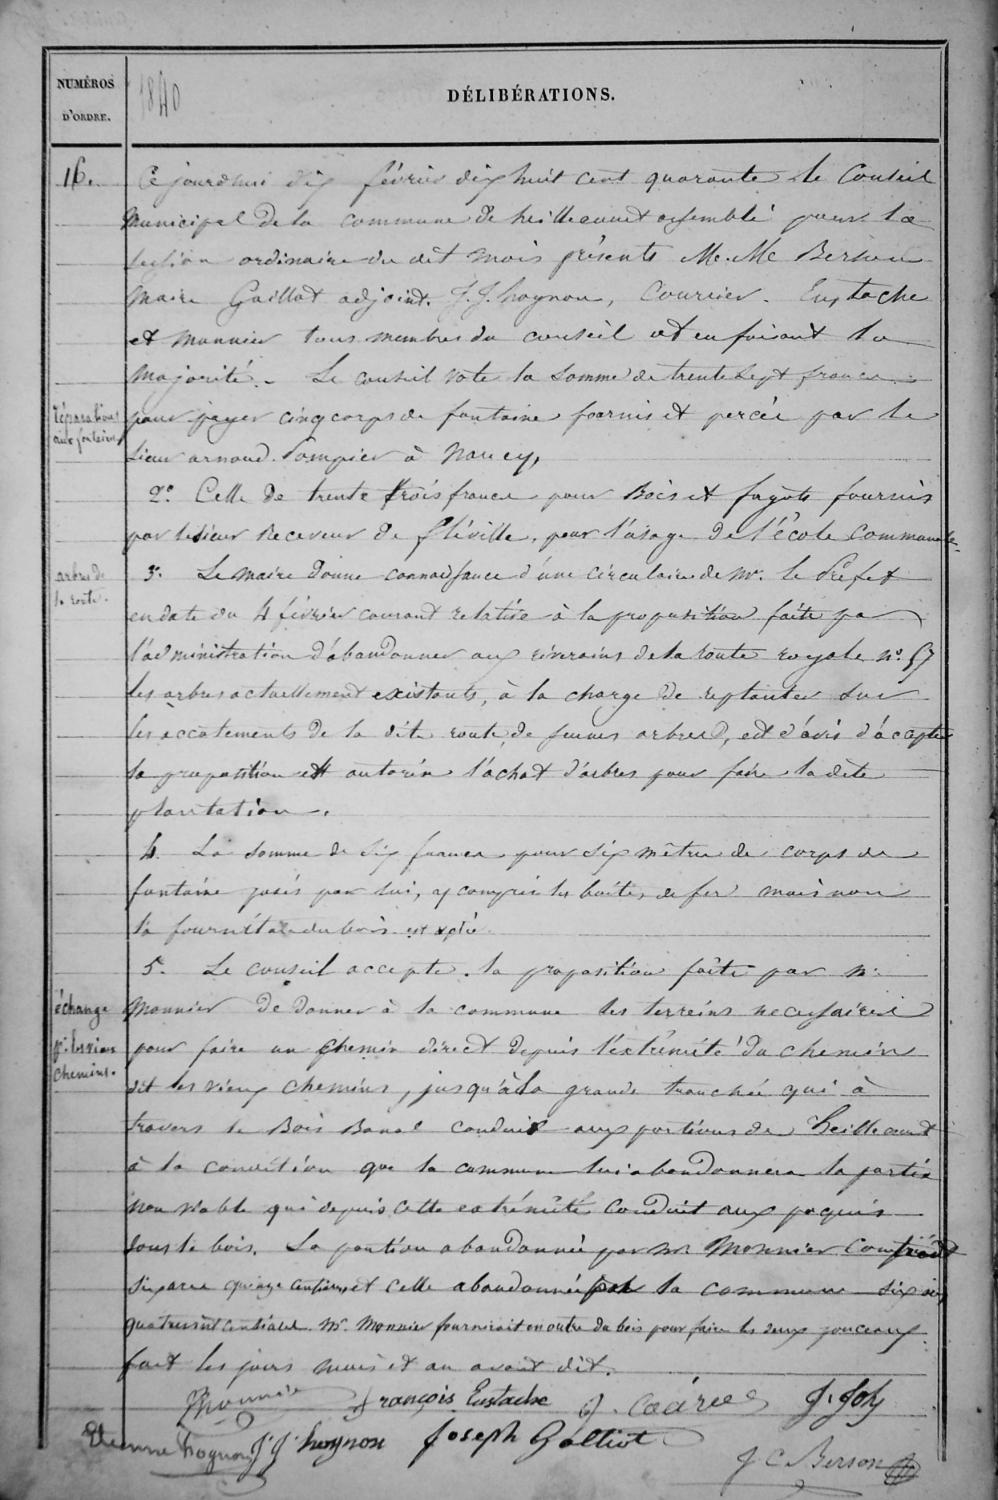 NUMÉROS
D'ORDRE.
1840
DÉLIBÉRATIONS.
16.
Ce jourd'hui dix février dix huit cent quarante le Conseil
Municipal de la commune de heillecourt assemblé pour la
session ordinaire du dit mois présents M.Mc Berson
Maire Galliot adjoint. J. J. hognon, Courrier. Eustache
et Monnier tous membres du conseil et en faisant la
Majorité. - Le conseil vote la somme de trente sept francs
réparations
aux fontaines
pour payer cinq corps de fontaine fournis et percée par le
Sieur arnoud Pompier à Nancy,
2°. Celle de trente trois francs pour Bois et fagots fournis
par le sieur Receveur de fléville, pour l'usage de l'école communale.
arbres de
la route.
3°. Le Maire donne connaissance d'une circulaire de Mr. le Préfet
en date du 4 février courant relative à la proposition faite par
l'administration d'abandonner aux riverains de la route royale n°. 57
les arbres actuellement existants, à la charge de replanter sur
les accotements de la dite route, de jeunes arbres, est d'avis d'accepter
la proposition et autorise l'achat d'arbres pour faire la dite
plantation.
4. La somme de six francs pour six mètres de corps de
fontaine posés par lui, y compris les boites de fer mais non
la fourniture du bois est votée
5°. Le conseil accepte la proposition faite par Mr.
échange
pr. les vieux
chemins.
Monnier de donner à la commune les terreins necessaires
pour faire un chemin direct depuis l'extrémité du chemin
dit les vieux chemins, jusqu'à la grande tranchée qui à
travers le Bois Banal conduit aux portions de heillecourt
à la condition que la commune lui abandonnera la partie
non viable qui depuis cette extrémité conduit aux paquis
sous le bois. La portion abandonnée par Mr Monnier contient
six ares quinze centiares et celle abandonnée par la commune six ares
quatrevingt centiares. Mr. Monnier fournirait en outre du bois pour faire les deux ponceaux
fait les jours mois et an avant dit.
Monnier François Eustache J. J. Joly
Etienne hognon J. J. hognon Joseph Galliot
J C Berson